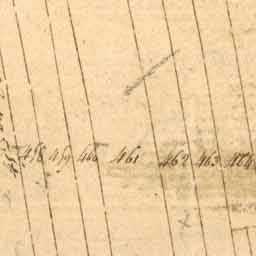 458 459 460 461 462 463 464